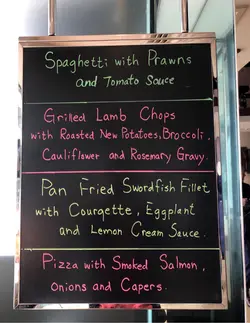 Spaghetti with Prawns
and Tomato Sauce
Grilled Lamb Chops
with Roasted New Potatoes, Broccoli,
Cauliflower and Rosemary Gravy.
Pan Fried Swordfish Fillet
with Courgette, Eggplant
and Lemon Cream Sauce.
Pizza with Smoked Salmon,
Onions and Capers.